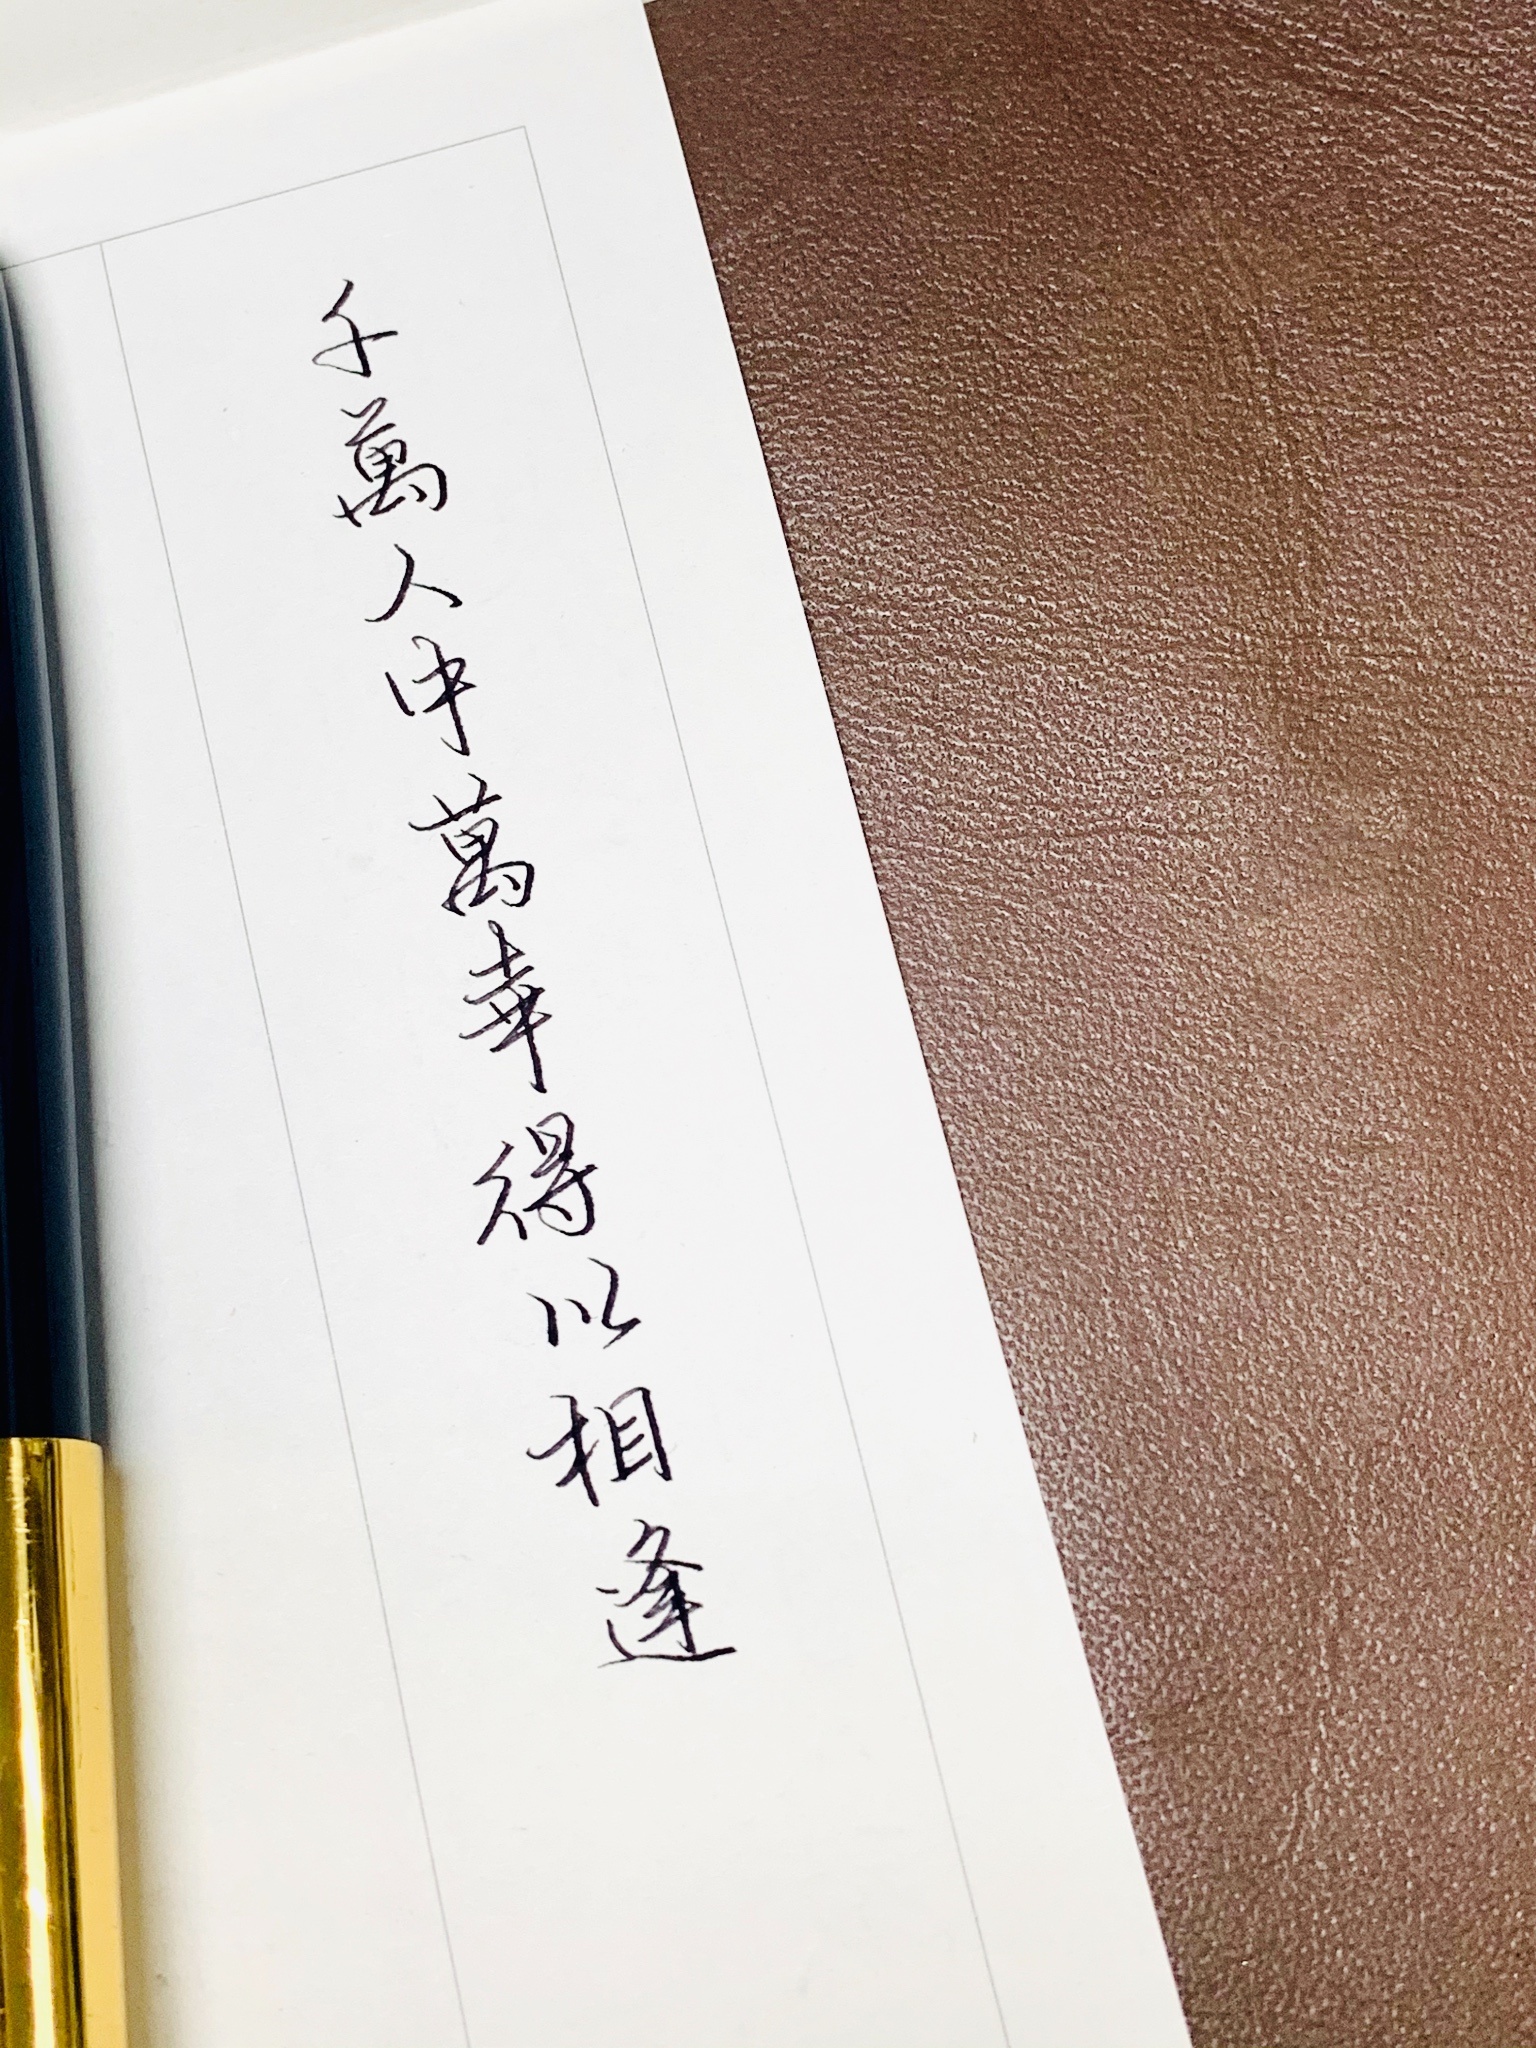 千萬人中萬幸得以相逢